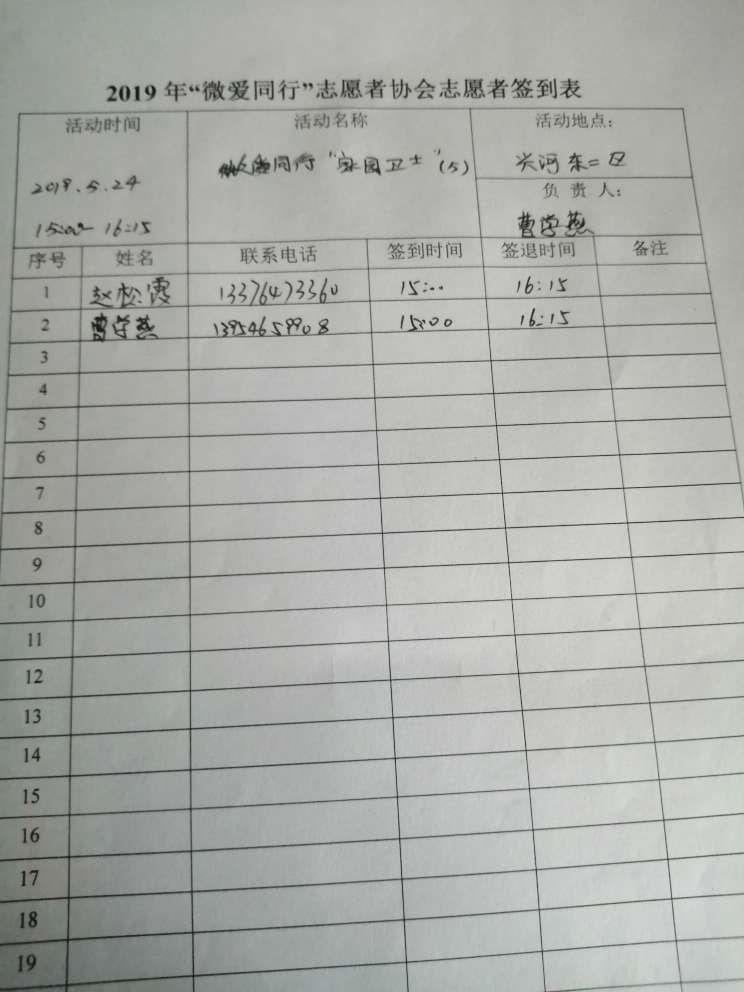 2019年“微爱同行”志愿者协会志愿者签到表
活动时间 活动名称 活动地点:
2019.5.24 微爱同行“家园卫士”(5) 兴河东二区
15:00-16:15 负责人:
曹学燕
序号 姓名 联系电话 签到时间 签退时间 备注
1 赵松霞 13376473360 15:00 16:15
2 曹学燕 13954659908 15:00 16:15
3
4
5
6
7
8
9
10
11
12
13
14
15
16
17
18
19